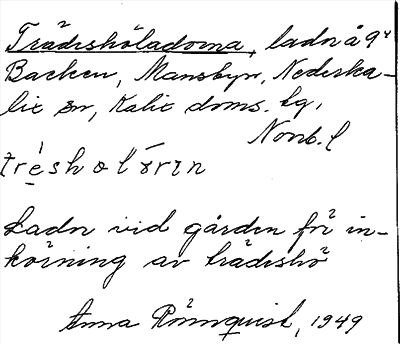 Trädeshöladorna, lador å går
Backen, Mansbyn, Nederka-
lix sn, Kalix doms. hg,
Norrb. l
tré̱sholȯrın
Lador vid gården för in-
körning av trädeshö
Anna Rönnquist, 1949